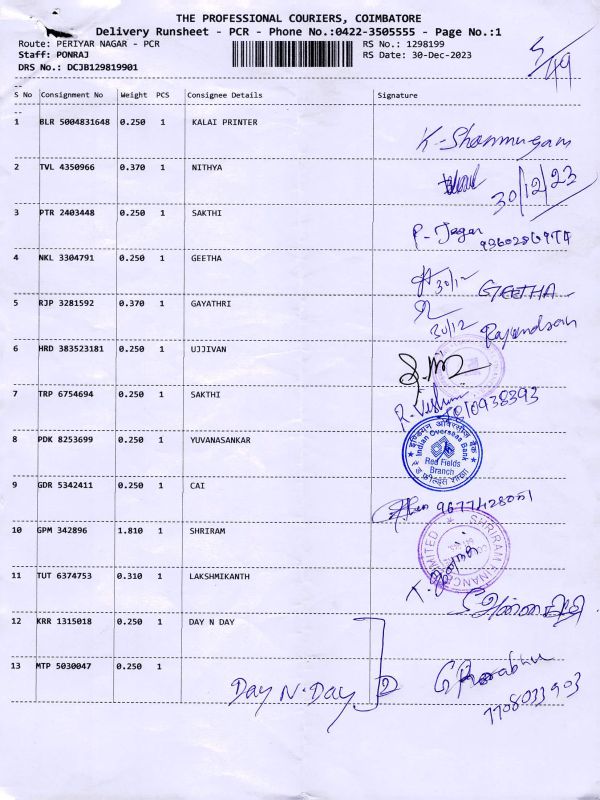 THE PROFESSIONAL COURIERS, COIMBATORE
Delivery Runsheet - PCR - Phone No.:0422-3505555 - Page No.:1
Route: PERIYAR NAGAR - PCR
RS No.: 1298199
Staff: PONRAJ
RS Date: 30-Dec-2023
DRS No.: DCJB129819901
5/49
S No Consignment No Weight PCS Consignee Details Signature
1 BLR 5004831648 0.250 1 KALAI PRINTER
K-Shanmugam
2 TVL 4350966 0.370 1 NITHYA
30/12/23
3 PTR 2403448 0.250 1 SAKTHI
P-Jagan
4 NKL 3304791 0.250 1 GEETHA
30/12 GEETHA
5 RJP 3281592 0.370 1 GAYATHRI
30/12 Rajendran
6 HRD 383523181 0.250 1 UJJIVAN
7 TRP 6754694 0.250 1 SAKTHI
8 PDK 8253699 0.250 1 YUVANASANKAR
इण्डियन ओवरसीज़ बैंक
Indian Overseas Bank
Red Fields
Branch
9 GDR 5342411 0.250 1 CAI
9677428051
10 GPM 342896 1.810 1 SHRIRAM
SHRIRAM FINANCE LIMITED
11 TUT 6374753 0.310 1 LAKSHMIKANTH
12 KRR 1315018 0.250 1 DAY N DAY
13 MTP 5030047 0.250 1
Day N. Day
G Prarabhu
7708033903